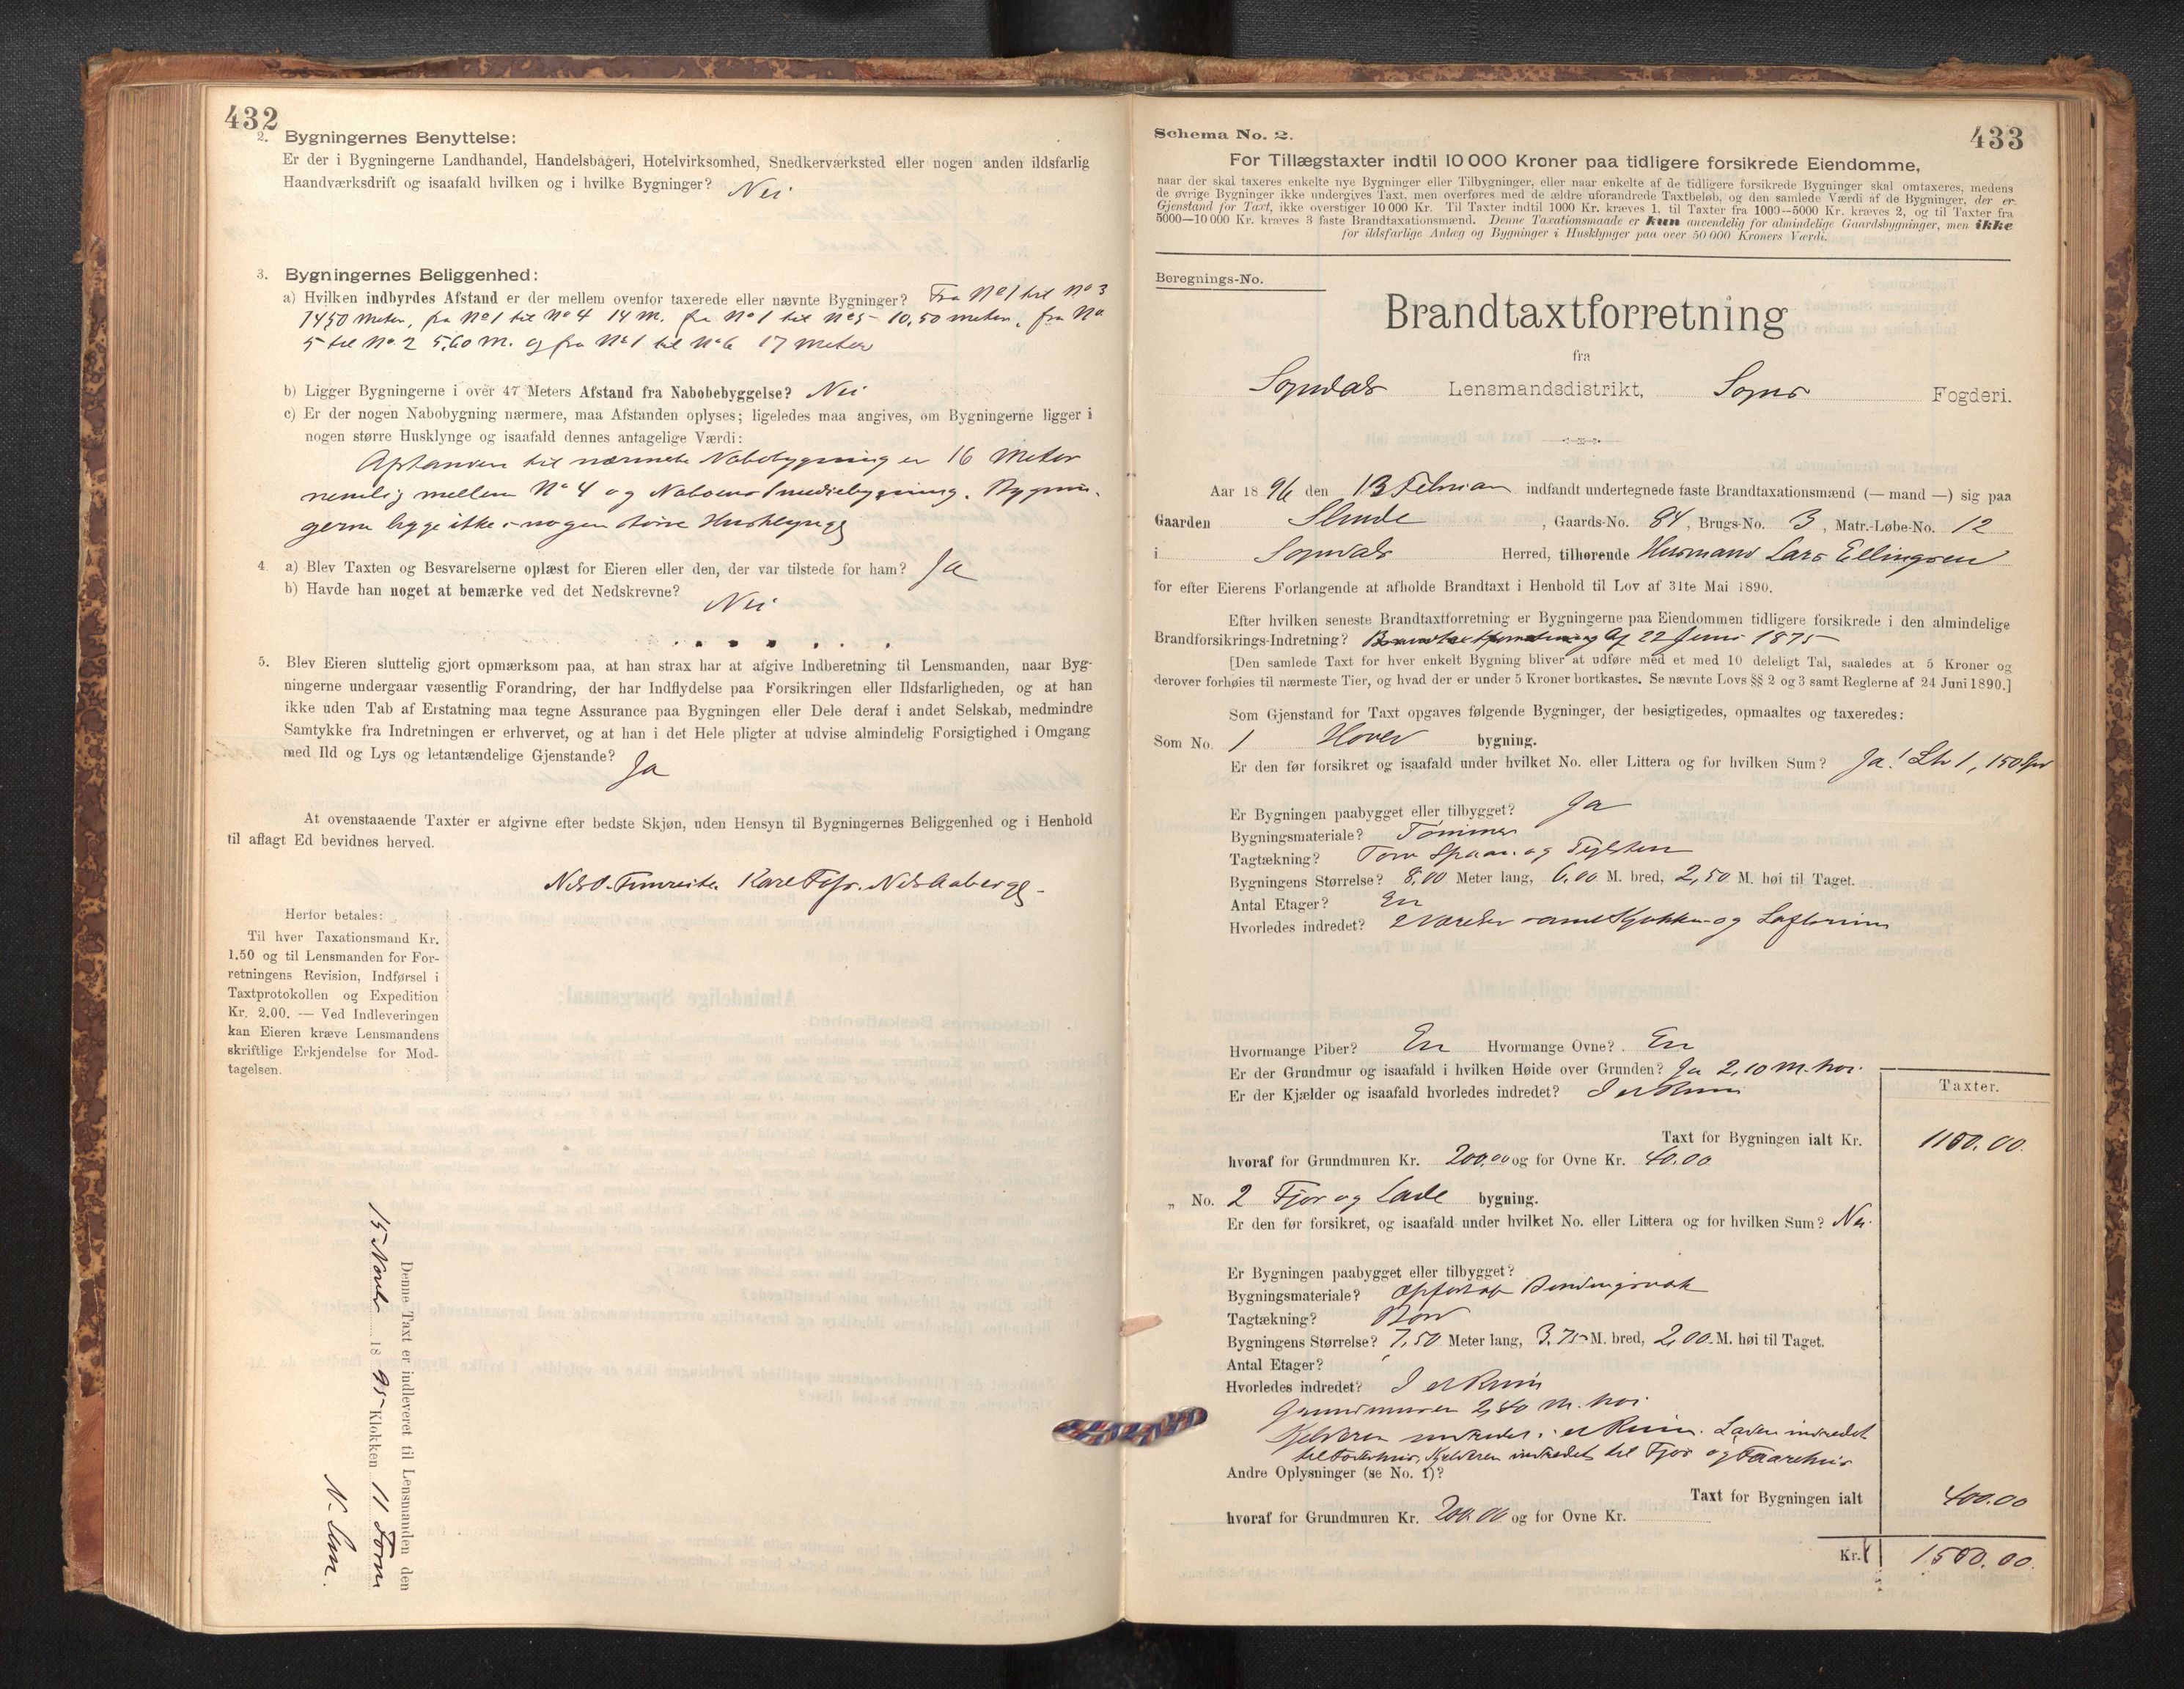 432
2. Bygningernes Benyttelse:
Er der i Bygningerne Landhandel, Handelsbageri, Hotelvirksomhed, Snedkerværksted eller nogen anden ildsfarlig
Haandværksdrift og isaafald hvilken og i hvilke Bygninger? Nei
3. Bygningernes Beliggenhed:
a) Hvilken indbyrdes Afstand er der mellem ovenfor taxerede eller nævnte Bygninger? Fra No 1 til No 3
1450 Meter, fra No 1 til No 4 14 M. fra No 1 til No 5 10,50 Meter, fra No
5 til No. 2 5,60 M. og fra No 1 til No 6 17 Meter
b) Ligger Bygningerne i over 47 Meters Afstand fra Nabobebyggelse? Nei
c) Er der nogen Nabobygning nærmere, maa Afstanden oplyses; ligeledes maa angives, om Bygningerne ligger i
nogen større Husklynge og isaafald dennes antagelige Værdi:
Afstanden til nærmeste Nabobygning er 16 Meter
nemlig mellem No 4 og Naboens Smediebygning. Bygnin-
gerne ligge ikke i nogen større Husklynge
4. a) Blev Taxten og Besvarelserne oplæst for Eieren eller den, der var tilstede for ham? Ja
b) Havde han noget at bemærke ved det Nedskrevne?
Nei
5. Blev Eieren sluttelig gjort opmærksom paa, at han strax har at afgive Indberetning til Lensmanden, naar Byg-
ningerne undergaar væsentlig Forandring, der har Indflydelse paa Forsikringen eller Ildsfarligheden, og at han
ikke uden Tab af Erstatning maa tegne Assurance paa Bygningen eller Dele deraf i andet Selskab, medmindre
Samtykke fra Indretningen er erhvervet, og at han i det Hele pligter at udvise almindelig Forsigtighed i Omgang
med Ild og Lys og letantændelige Gjenstande? Ja
At ovenstaaende Taxter er afgivne efter bedste Skjøn, uden Hensyn til Bygningernes Beliggenhed og i Henhold
til aflagt Ed bevidnes herved.
Nils Aaberge
Herfor betales:
Til hver Taxationsmand Kr.
1.50 og til Lensmanden for For-
retningens Revision, Indførsel i
Taxtprotokollen og Expedition
Kr. 2.00. — Ved Indleveringen
kan Eieren kræve Lensmandens
skriftlige Erkjendelse for Mod-
tagelsen.
Denne Taxt er indleveret til Lensmanden den
15 Novbr 1895 Klokken 11 Form
433
Schema No. 2.
For Tillægstaxter indtil 10 000 Kroner paa tidligere forsikrede Eiendomme,
naar der skal taxeres enkelte nye Bygninger eller Tilbygninger, eller naar enkelte af de tidligere forsikrede Bygninger skal omtaxeres, medens
de øvrige Bygninger ikke undergives Taxt, men overføres med de ældre uforandrede Taxtbeløb, og den samlede Værdi af de Bygninger, der er
Gjenstand for Taxt, ikke overstiger 10 000 Kr. Til Taxter indtil 1000 Kr. kræves 1, til Taxter fra 1000—5000 Kr. kræves 2, og til Taxter fra
5000—10 000 Kr. kræves 3 faste Brandtaxationsmænd. Denne Taxationsmaade er kun anvendelig for almindelige Gaardsbygninger, men ikke
for ildsfarlige Anlæg og Bygninger i Husklynger paa over 50 000 Kroners Værdi.
Beregnings-No.
Brandtaxtforretning
fra
Sogndals Lensmandsdistrikt, Sogns Fogderi.
Aar 1896 den 13 Februar indfandt undertegnede faste Brandtaxationsmænd (— mand —) sig paa
Gaarden Slinde, Gaards-No. 84, Brugs-No. 3, Matr.-Løbe-No. 12
i Sogndals Herred, tilhørende Husmand Lars Ellingsen
for efter Eierens Forlangende at afholde Brandtaxt i Henhold til Lov af 31te Mai 1890.
Efter hvilken seneste Brandtaxtforretning er Bygningerne paa Eiendommen tidligere forsikrede i den almindelige
Brandforsikrings-Indretning? Brandtaxtforretning af 22 Juni 1875
[Den samlede Taxt for hver enkelt Bygning bliver at udføre med et med 10 deleligt Tal, saaledes at 5 Kroner og
derover forhøies til nærmeste Tier, og hvad der er under 5 Kroner bortkastes. Se nævnte Lovs §§ 2 og 3 samt Reglerne af 24 Juni 1890.]
Som Gjenstand for Taxt opgaves følgende Bygninger, der besigtigedes, opmaaltes og taxeredes:
Som No. 1 Hoved bygning.
Er den før forsikret og isaafald under hvilket No. eller Littera og for hvilken Sum? Ja! Ltr 1, 150 Spd
Er Bygningen paabygget eller tilbygget? Ja
Bygningsmateriale? Tømmer
Tagtækning? Torv Spaan og Teglsten
Bygningens Størrelse? 8,00 Meter lang, 6,00 M. bred, 2,50 M. høi til Taget.
Antal Etager? En
Hvorledes indredet? 2 Værelser samt Kjøkken og Loftsrum
Hvormange Piber? En Hvormange Ovne? En
Er der Grundmur og isaafald i hvilken Høide over Grunden? Ja 2,10 M. høi.
Er der Kjælder og isaafald hvorledes indredet? I et Rum
Taxter.
Taxt for Bygningen ialt Kr. 1100.00.
hvoraf for Grundmuren Kr. 200.00 og for Ovne Kr. 40.00
„ No. 2 Fjøs og Lade bygning.
Er den før forsikret, og isaafald under hvilket No. eller Littera og for hvilken Sum? Nei.
Er Bygningen paabygget eller tilbygget?
Bygningsmateriale? Opført af Bindingsværk
Tagtækning? Torv
Bygningens Størrelse? 7,50 Meter lang, 3,75 M. bred, 2,00 M. høi til Taget.
Antal Etager?
Hvorledes indredet? I et Rum
Grundmuren 2,40 M. høi
Kjelderen indredet i et Rum. Laden indredet
til Foderhus, Kjelderen indredet til Fjøs og Faarehus
Andre Oplysninger (se No. 1)?
Taxt for Bygningen ialt 400.00
hvoraf for Grundmuren Kr. 200.00 og for Ovne Kr.
Kr. 1500.00.